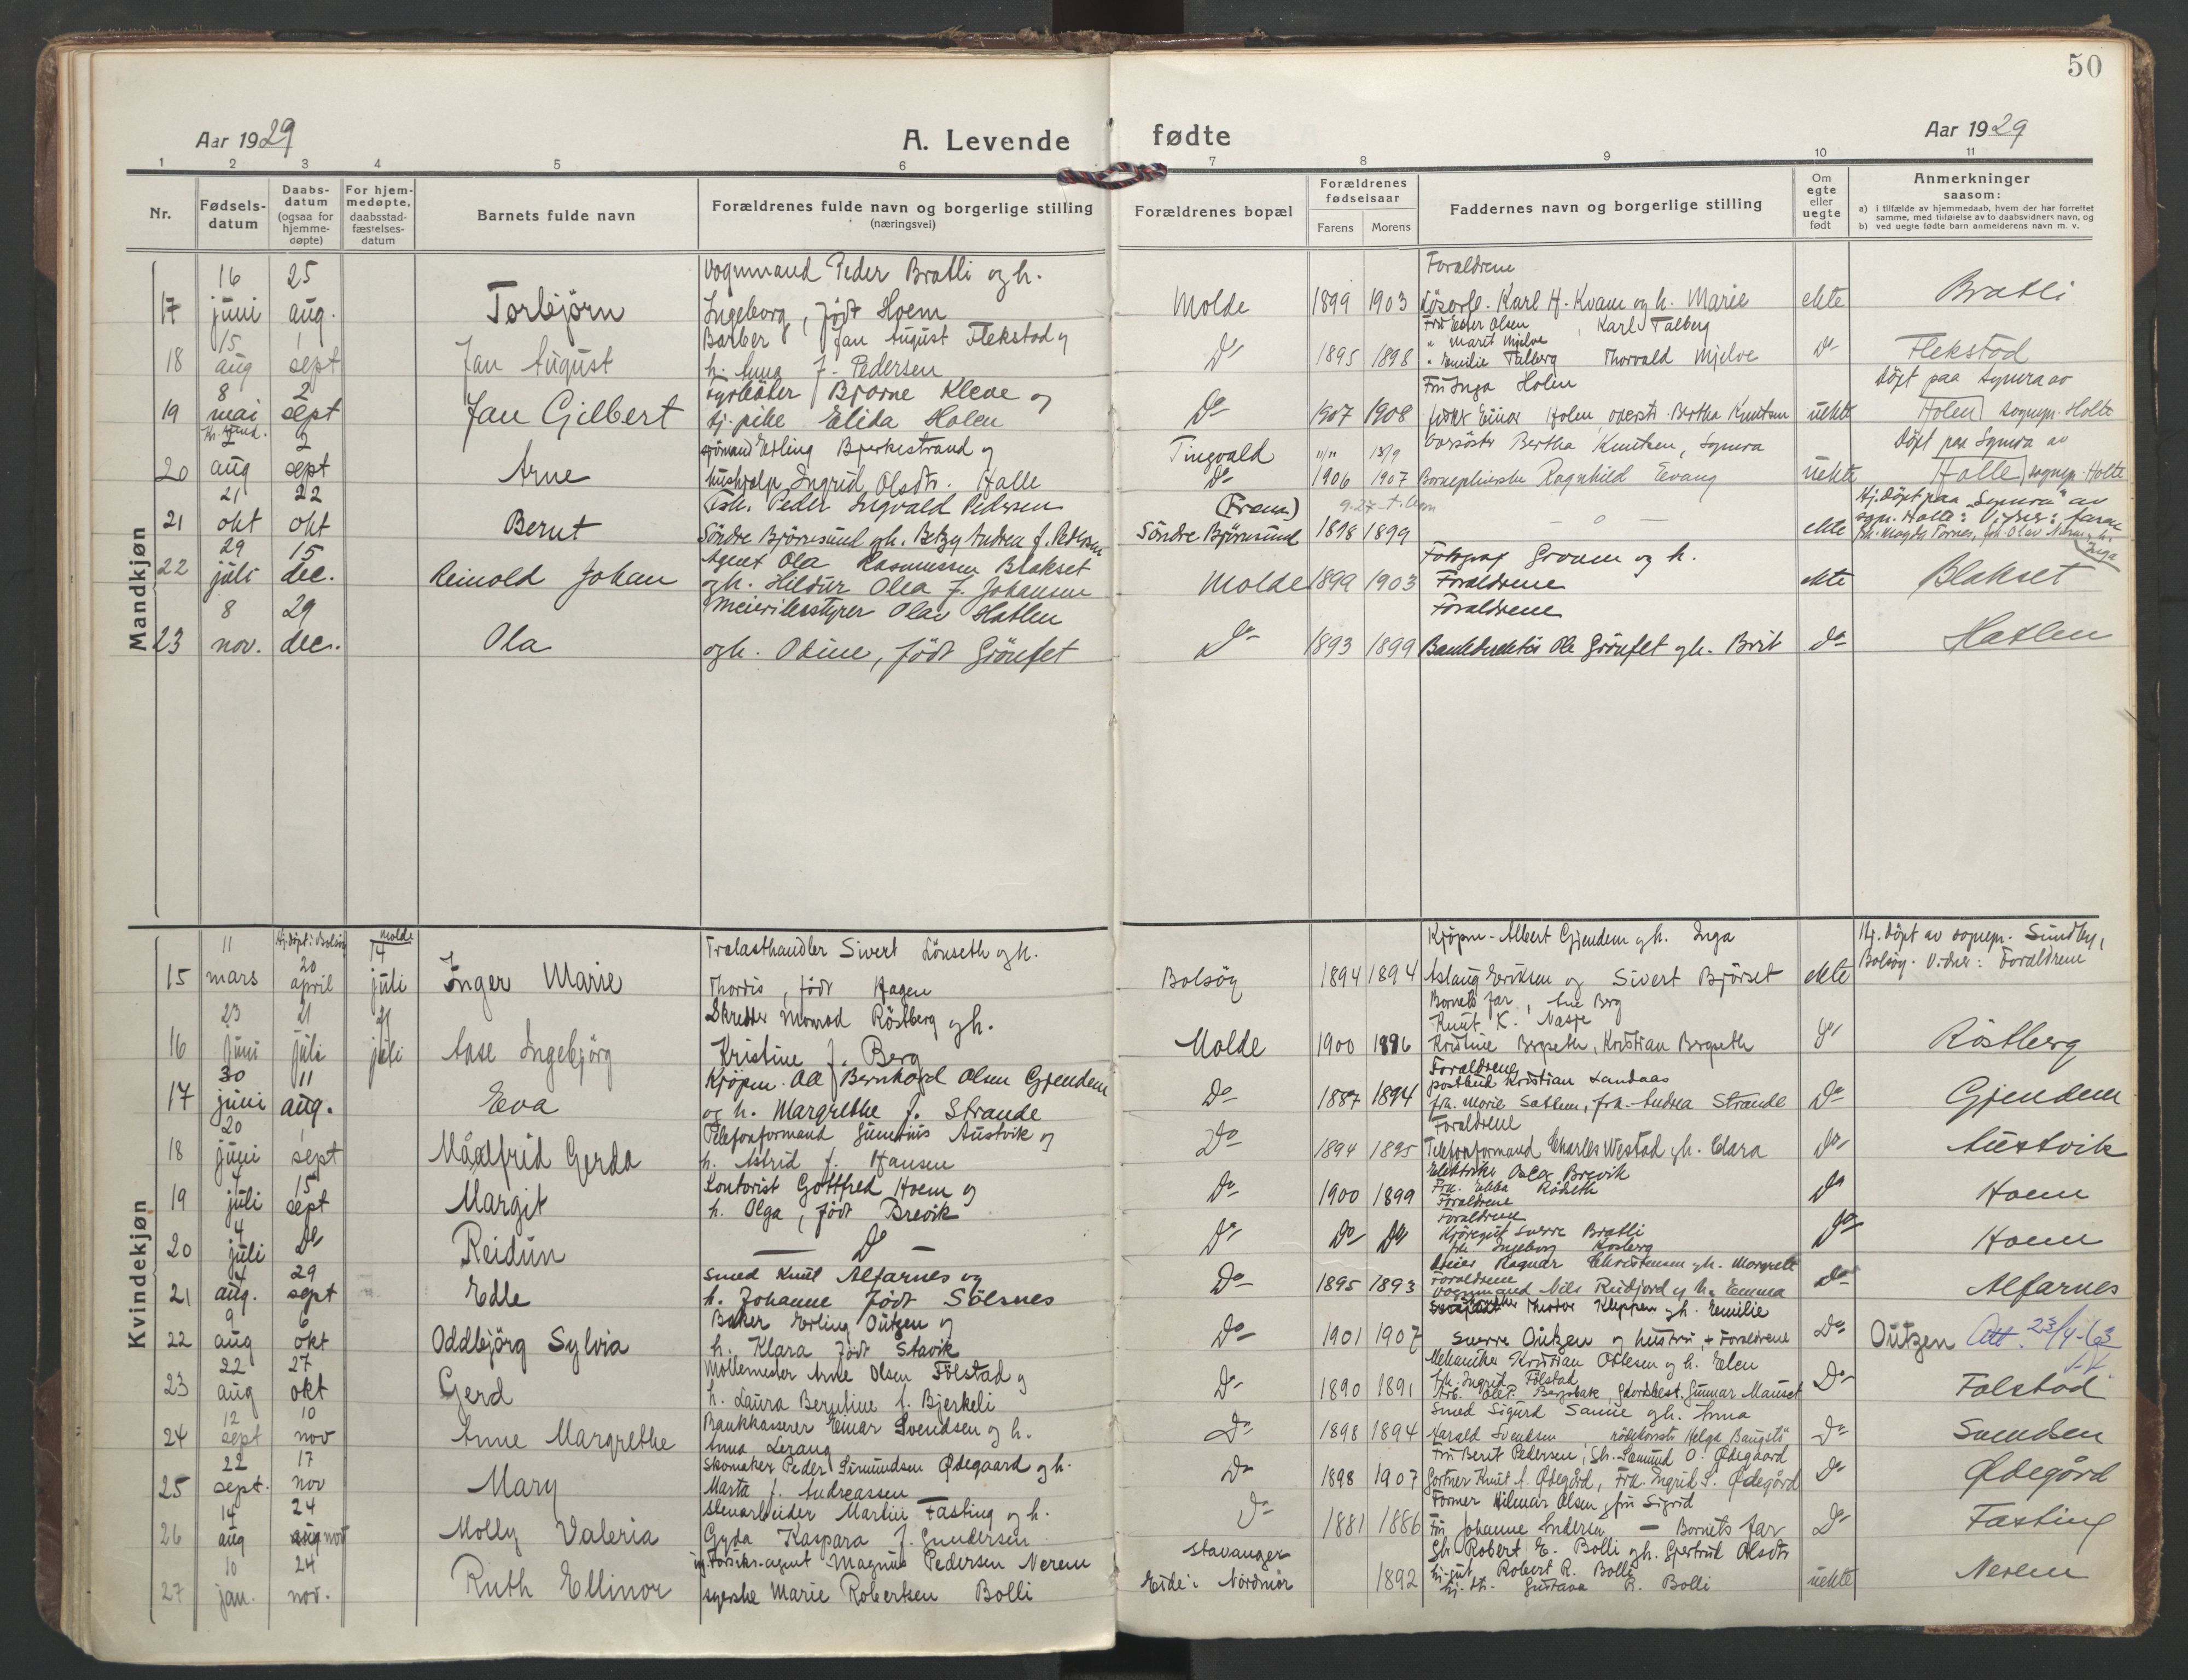 50
Aar 1929
A. Levende fødte
Aar 1929
1 2 3 4 5 6 7 8 9 10 11
Nr.
Fødsels-
datum
Daabs-
datum
(ogsaa for
hjemme-
døpte)
For hjem-
medøpte,
daabsstad-
fæstelses-
datum
Barnets fulde navn
Forældrenes fulde navn og borgerlige stilling
(næringsvei)
Forældrenes bopæl
Forældrenes
fødselsaar
Farens Morens
Faddernes navn og borgerlige stilling
Om
egte
eller
uegte
født
Anmerkninger
saasom:
a) i tilfælde av hjemmedaab, hvem der har forrettet
samme, med tilføielse av to daabsvidners navn, og
b) ved uegte fødte barn anmelderens navn m. v.
Mandkjøn
17 16 juni 25 aug. Torbjørn
Vognmand Peder Bratli og h.
Ingeborg, født Hoem
Molde 1899 1903
Forældrene
Karl H. Kvam og h. Marie
ekte Bratli
18 15 aug 1 sept Jan August
Barber Jan August Flekstad og
h. Anna f. Pedersen
Do 1895 1898
Frk Ester Olsen, Karl Talberg
" Marit Mjelve
" Emilie Talberg Thorvald Mjelve
Do Flekstad
19 8 mai Kr. sund. 2 sept Jan Gilbert
Fyrbøter Bjarne Kleve og
tj. pike Elida Holen
Do 1907 1908
Fru Inga Holen
Einar Holen, oversts. Bertha Knutsen
uekte
Døpt paa Symra av
Holen sognepr. Holte
20 2 aug 2 sept Arne
sjømand Erling Bjerkestrand og
hushjelp Ingrid Olsdtr. Halle
Tingvold
Do
11/11 13/9
1906 1907
Oversøster Bertha Knutsen, Symra
Barnepleierske Ragnhild Eevang
uekte
Døpt paa Symra av
Halle sognepr. Holte
21 21 okt 22 okt Bernt
Fisk. Peder Ingvald Pedersen
Søndre Bjørnsund og h. Betzy Andrea f. Pedersen
(Fræna)
Søndre Bjørnsund 1898 1899
— o —
ekte
Hj. døpt paa "Symra" av
sgpr. Holte: Vidner: faren
22 29 juli 15 dec. Reinold Johan
Agent Ola Rasmussen Blakset
og h. Hildur Olea f. Johansen
Molde 1899 1903
Fotograf Groven og h. Inga
Forældrene
ekte Blakset
23 8 nov. 29 dec. Ola
Meieribestyrer Olav Hatlen
og h. Odine, født Grønset
Do 1893 1899
Forældrene
Bankdirektør Ole Grønset og h. Brit
do Hatlen
Kvindekjøn
15 11 mars Hj. døpt i Bolsøy 20 april Molde 14 juli Inger Marie
Trælasthandler Sivert Lønseth og h.
Thordis, født Hagen
Bolsøy 1894 1894
Kjøpm. Albert Gjendem og h. Inga
Aslaug Eriksen og Sivert Bjørset
ekte
Hj. døpt av sognepr. Sundby,
Bolsøy. Vidner: Forældrene
16 23 juni 21 juli 21 juli Aase Ingebjørg
Skredder Monrad Røstberg og h.
Kristine f. Berg
Molde 1900 1896
Barnets far, Ane Berg
Knut K. Nasje
Kristine Bergseth, Kristian Bergseth
do Røstberg
17 30 juni 11 aug. Eva
Kjøpm. Ole Bernhard Olsen Gjendem
og h. Margrethe f. Strande
Do 1887 1894
Forældrene
postbud Kristian Landaas
frk. Marie Sattem, frk. Andrea Strande
Do Gjendem
18 20 juni 1 sept Målfrid Gerda
Telefonformand Gunerius Austvik og
h. Astrid f. Hansen
Do 1894 1895
Forældrene
Telefonformand Charles Westad og h. Clara
Do Austvik
19 4 juli 15 sept Margit
Kontorist Gottfred Hoem og
h. Olga, født Brevik
Do 1900 1899
Elektriker Oscar Brevik
Frk. Ebba Rødseth
Forældrene
Do Hoem
20 4 juli Do Reidun
— Do —
Do Do Do
Forældrene
Kjøregut Sverre Bratli
frk. Ingeborg Kosberg
Do Hoem
21 4 aug. 29 sept Edle
Smed Knut Alfarnes og
h. Johanne født Sølsnes
Do 1895 1893
Ragnar Christensen og h. Margrete
Forældrene
vognmand Nils Reidfjord og h. Emma
Do Alfarnes
22 9 aug 6 okt Oddbjørg Sylvia
Baker Erling Outzen og
h. Klara født Stavik
Do 1901 1907
Thodor Kleppen og h. Emilie
Sverre Outzen og hustru, + Forældrene
Do Outzen Att. 23/4-63
23 22 aug 27 okt Gerd
Møllemester Arne Olsen Folstad og
h. Laura Berntine f. Bjerkeli
Do 1890 1891
Mekaniker Kristian Ottersen og h. Elen
frk. Ingrid Folstad
Gunnar Mauset
Do Folstad
24 12 sept 10 nov Anne Margrethe
Bankkasserer Einar Svendsen og h.
Anna Lerang
Do 1898 1894
Smed Sigurd Sanne og h. Anna
Harald Svendsen, Helga Baugstø
Do Svendsen
25 22 sept. 17 nov Mary
Skomaker Peder Simundsen Ødegaard og h.
Marta f. Andreassen
Do 1898 1907
Fru Berit Pedersen, Gbr. Samund O. Ødegaard
Gartner Knut A. Ødegård, Frk. Ingrid S. Ødegård
Do Ødegård
26 14 aug 24 nov Molly Valeria
Stenarbeider Martin Fasting og h.
Gyda Kaspara f. Gundersen
Do 1881 1886
Former Hilmar Olsen, fru Sigrid
Fru Johanne Andersen — Barnets far
Do Fasting
27 10 jan. 24 nov. Ruth Ellinor
Magnus Pedersen Nerem
syerske Marie Robertsen Bolli
Stavanger
Eide i Nordmør 1892
Gbr. Robert E. Bolli og h. Gjertrud Olsdtr
tj. gut Robert R. Bolli
Gustava R. Bolli
uekte Nerem